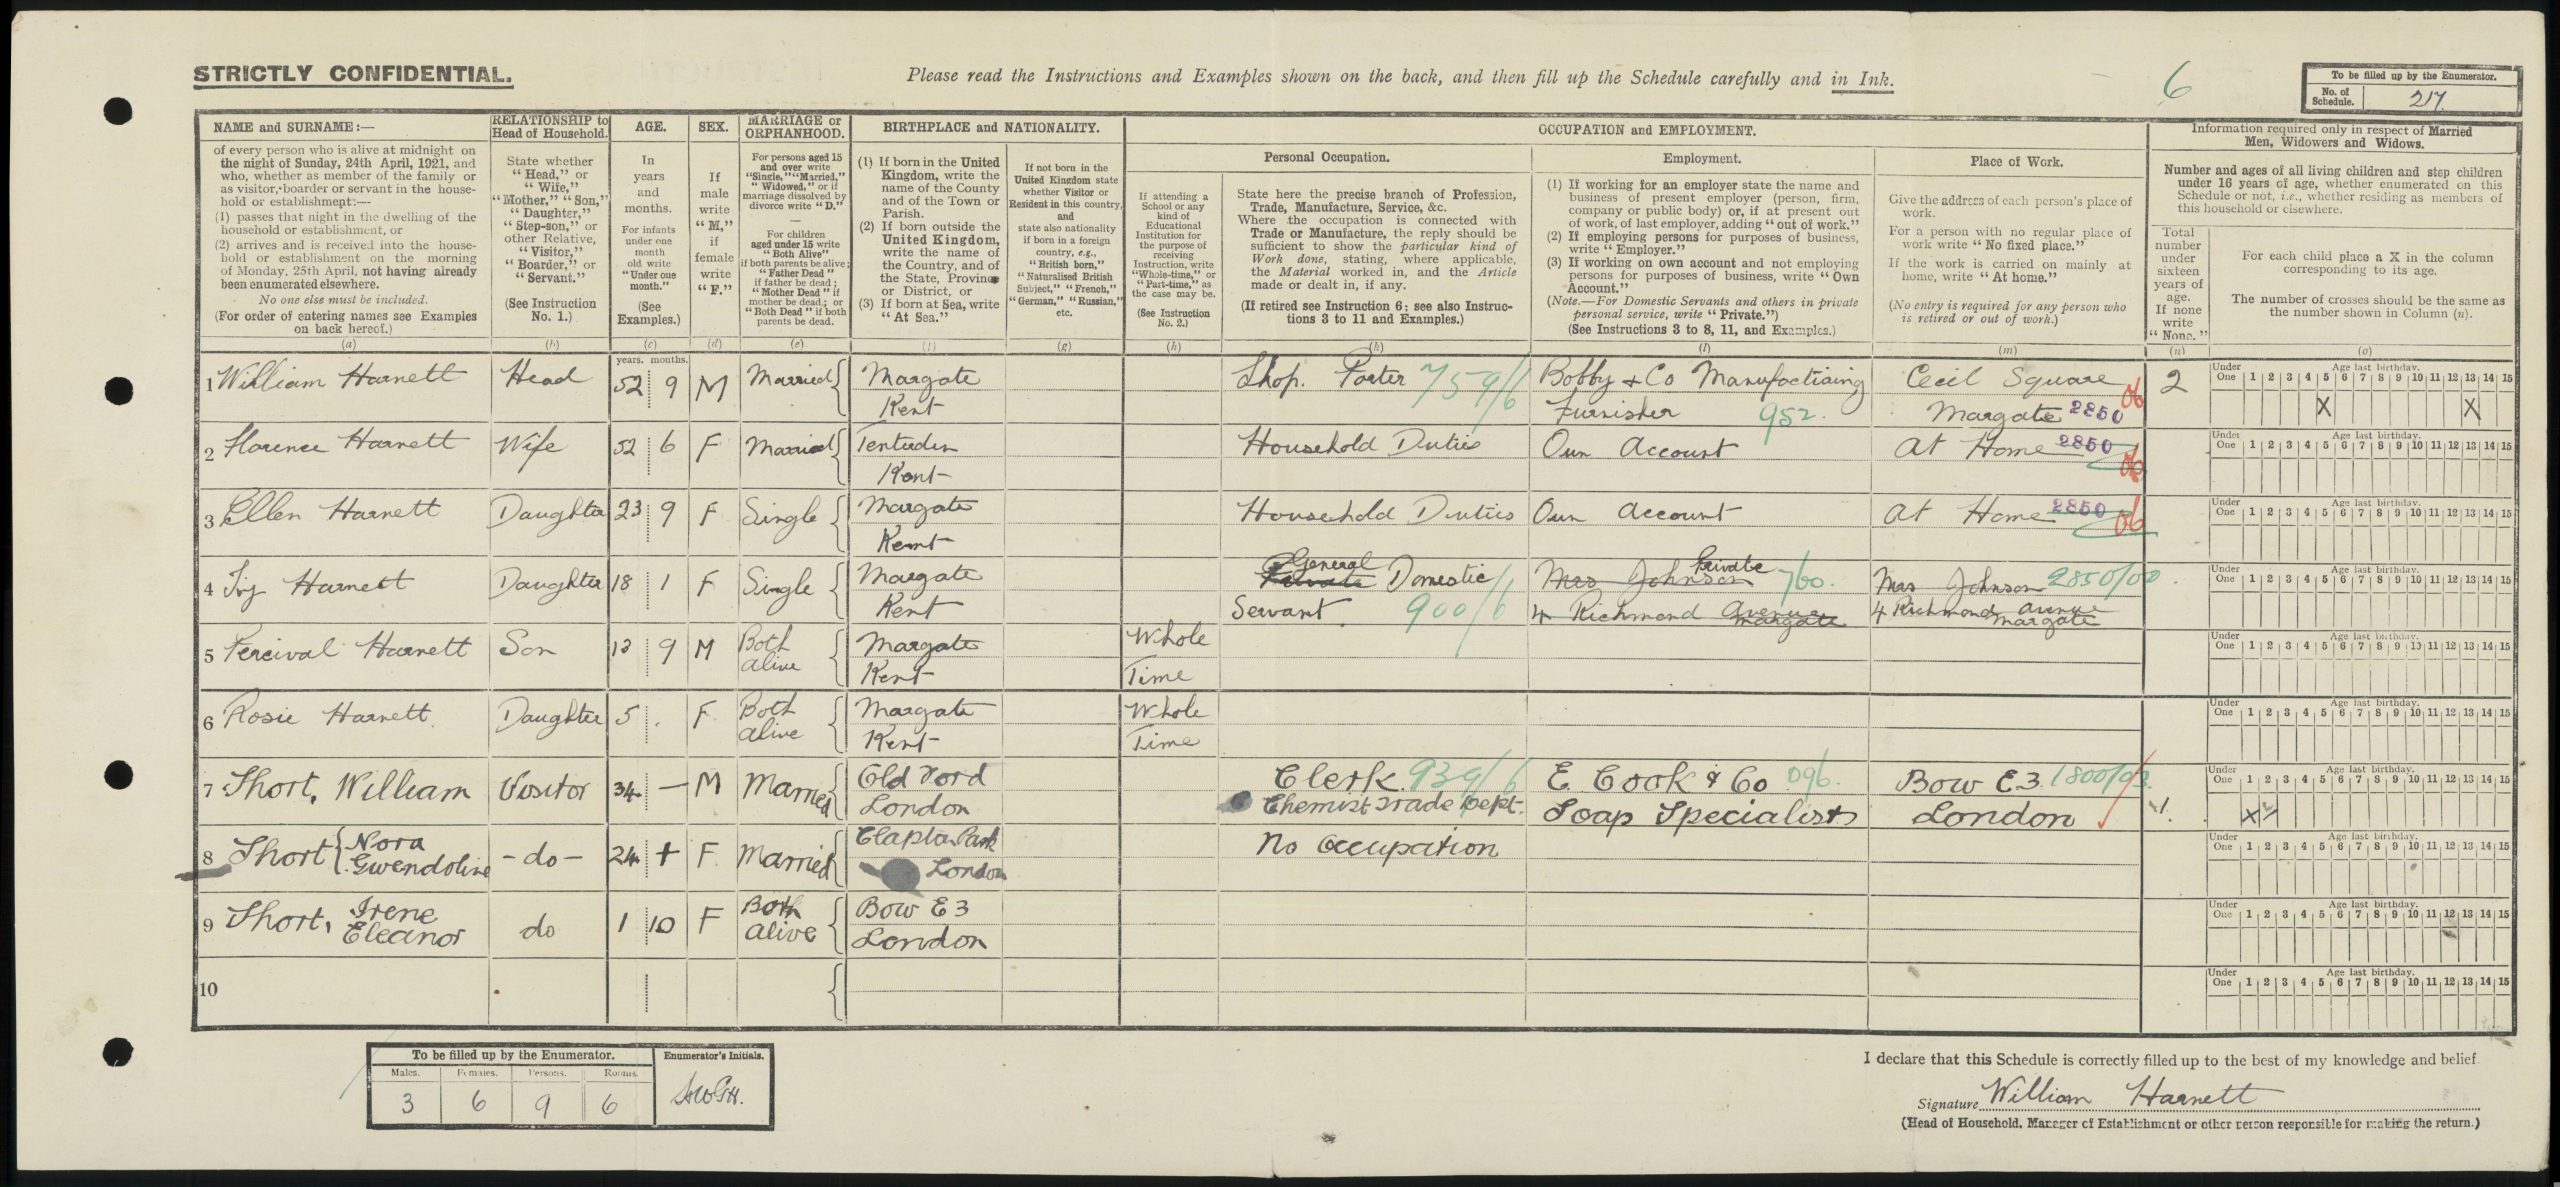 STRICTLY CONFIDENTIAL.
Please read the Instructions and Examples shown on the back, and then fill up the Schedule carefully and in Ink.
6
To be filled up by the Enumerator.
No. of Schedule. 217
NAME and SURNAME:—
of every person who is alive at midnight on
the night of Sunday, 24th April, 1921, and
who, whether as member of the family or
as visitor, boarder or servant in the house-
hold or establishment:—
(1) passes that night in the dwelling of the
household or establishment, or
(2) arrives and is received into the house-
hold or establishment on the morning
of Monday, 25th April, not having already
been enumerated elsewhere.
No one else must be included.
(For order of entering names see Examples
on back hereof.)
(a)
RELATIONSHIP to
Head of Household.
State whether
"Head," or
"Wife,"
"Mother," "Son,"
"Daughter,"
"Step-son," or
other Relative,
"Visitor,"
"Boarder," or
"Servant."
(See Instruction
No. 1.)
(b)
AGE.
In
years
and
months.
For infants
under one
month
old write
"Under one
month."
(See
Examples.)
(c)
years. months.
SEX.
If
male
write
"M,"
if
female
write
"F."
(d)
MARRIAGE or
ORPHANHOOD.
For persons aged 15
and over write
"Single," "Married,"
"Widowed," or if
marriage dissolved by
divorce write "D."
—
For children
aged under 15 write
"Both Alive"
if both parents be alive;
"Father Dead"
if father be dead;
"Mother Dead" if
mother be dead; or
"Both Dead" if both
parents be dead.
(e)
BIRTHPLACE and NATIONALITY.
(1) If born in the United
Kingdom, write the
name of the County
and of the Town or
Parish.
(2) If born outside the
United Kingdom,
write the name of
the Country, and of
the State, Province
or District, or
(3) If born at Sea, write
"At Sea."
(f)
If not born in the
United Kingdom state
whether Visitor or
Resident in this country,
and
state also nationality
if born in a foreign
country, e.g.,
"British born,"
"Naturalised British
Subject," "French,"
"German," "Russian,"
etc.
(g)
OCCUPATION and EMPLOYMENT.
If attending a
School or any
kind of
Educational
Institution for
the purpose of
receiving
Instruction, write
"Whole-time," or
"Part-time," as
the case may be.
(See Instruction
No. 2.)
(h)
Personal Occupation.
State here the precise branch of Profession,
Trade, Manufacture, Service, &c.
Where the occupation is connected with
Trade or Manufacture, the reply should be
sufficient to show the particular kind of
Work done, stating, where applicable,
the Material worked in, and the Article
made or dealt in, if any.
(If retired see Instruction 6; see also Instruc-
tions 3 to 11 and Examples.)
(k)
Employment.
(1) If working for an employer state the name and
business of present employer (person, firm,
company or public body) or, if at present out
of work, of last employer, adding "out of work."
(2) If employing persons for purposes of business,
write "Employer."
(3) If working on own account and not employing
persons for purposes of business, write "Own
Account."
(Note.—For Domestic Servants and others in private
personal service, write "Private.")
(See Instructions 3 to 8, 11, and Examples.)
(l)
Place of Work.
Give the address of each person's place of
work.
For a person with no regular place of
work write "No fixed place."
If the work is carried on mainly at
home, write "At home."
(No entry is required for any person who
is retired or out of work.)
(m)
Information required only in respect of Married
Men, Widowers and Widows.
Number and ages of all living children and step children
under 16 years of age, whether enumerated on this
Schedule or not, i.e., whether residing as members of
this household or elsewhere.
Total
number
under
sixteen
years of
age.
If none
write
"None."
(n)
For each child place a X in the column
corresponding to its age.
The number of crosses should be the same as
the number shown in Column (n).
(o)
Under One Age last birthday. 1 2 3 4 5 6 7 8 9 10 11 12 13 14 15
1 William Harnett Head 52 9 M Married Margate Shop. Porter 759/6 Bobby & Co Manufactiaing Cecil Square 06 2
Kent Furnisher 952. Margate 2850 X X
Under One Age last birthday. 1 2 3 4 5 6 7 8 9 10 11 12 13 14 15
2 Florence Harnett Wife 52 6 F Married Tenterden Household Duties Own Account At Home 2850 06
Kent
Under One Age last birthday. 1 2 3 4 5 6 7 8 9 10 11 12 13 14 15
3 Ellen Harnett Daughter 23 9 F Single Margate Household Duties Own Account At Home 2850 06
Kent
Under One Age last birthday. 1 2 3 4 5 6 7 8 9 10 11 12 13 14 15
General Private
4 Ivy Harnett Daughter 18 1 F Single Margate Private Domestic Mrs Johnson 760. Mrs Johnson 2850/00.
Kent Servant 900/6 4 Richmond Avenue Margate 4 Richmond Avenue Margate
Under One Age last birthday. 1 2 3 4 5 6 7 8 9 10 11 12 13 14 15
5 Percival Harnett Son 13 9 M Both Margate Whole
alive Kent Time
Under One Age last birthday. 1 2 3 4 5 6 7 8 9 10 11 12 13 14 15
6 Rosie Harnett. Daughter 5 . F Both Margate Whole
alive Kent Time
Under One Age last birthday. 1 2 3 4 5 6 7 8 9 10 11 12 13 14 15
7 Short, William Visitor 34 — M Married Old Ford Clerk 939/6 E. Cook & Co 096. Bow E3 1800/03. 1.
London Chemist Trade Dept. Soap Specialists London X
Under One Age last birthday. 1 2 3 4 5 6 7 8 9 10 11 12 13 14 15
8 Short { Nora -do- 24 + F. Married Clapton Park No Occupation
Gwendoline London
Under One Age last birthday. 1 2 3 4 5 6 7 8 9 10 11 12 13 14 15
9 Short, Irene do 1 10 F Both Bow E3
Eleanor Alive London
Under One Age last birthday. 1 2 3 4 5 6 7 8 9 10 11 12 13 14 15
10
To be filled up by the Enumerator. Enumerator's Initials.
Males. Females. Persons. Rooms.
3 6 9 6
I declare that this Schedule is correctly filled up to the best of my knowledge and belief.
Signature William Harnett
(Head of Household, Manager of Establishment or other person responsible for making the return.)